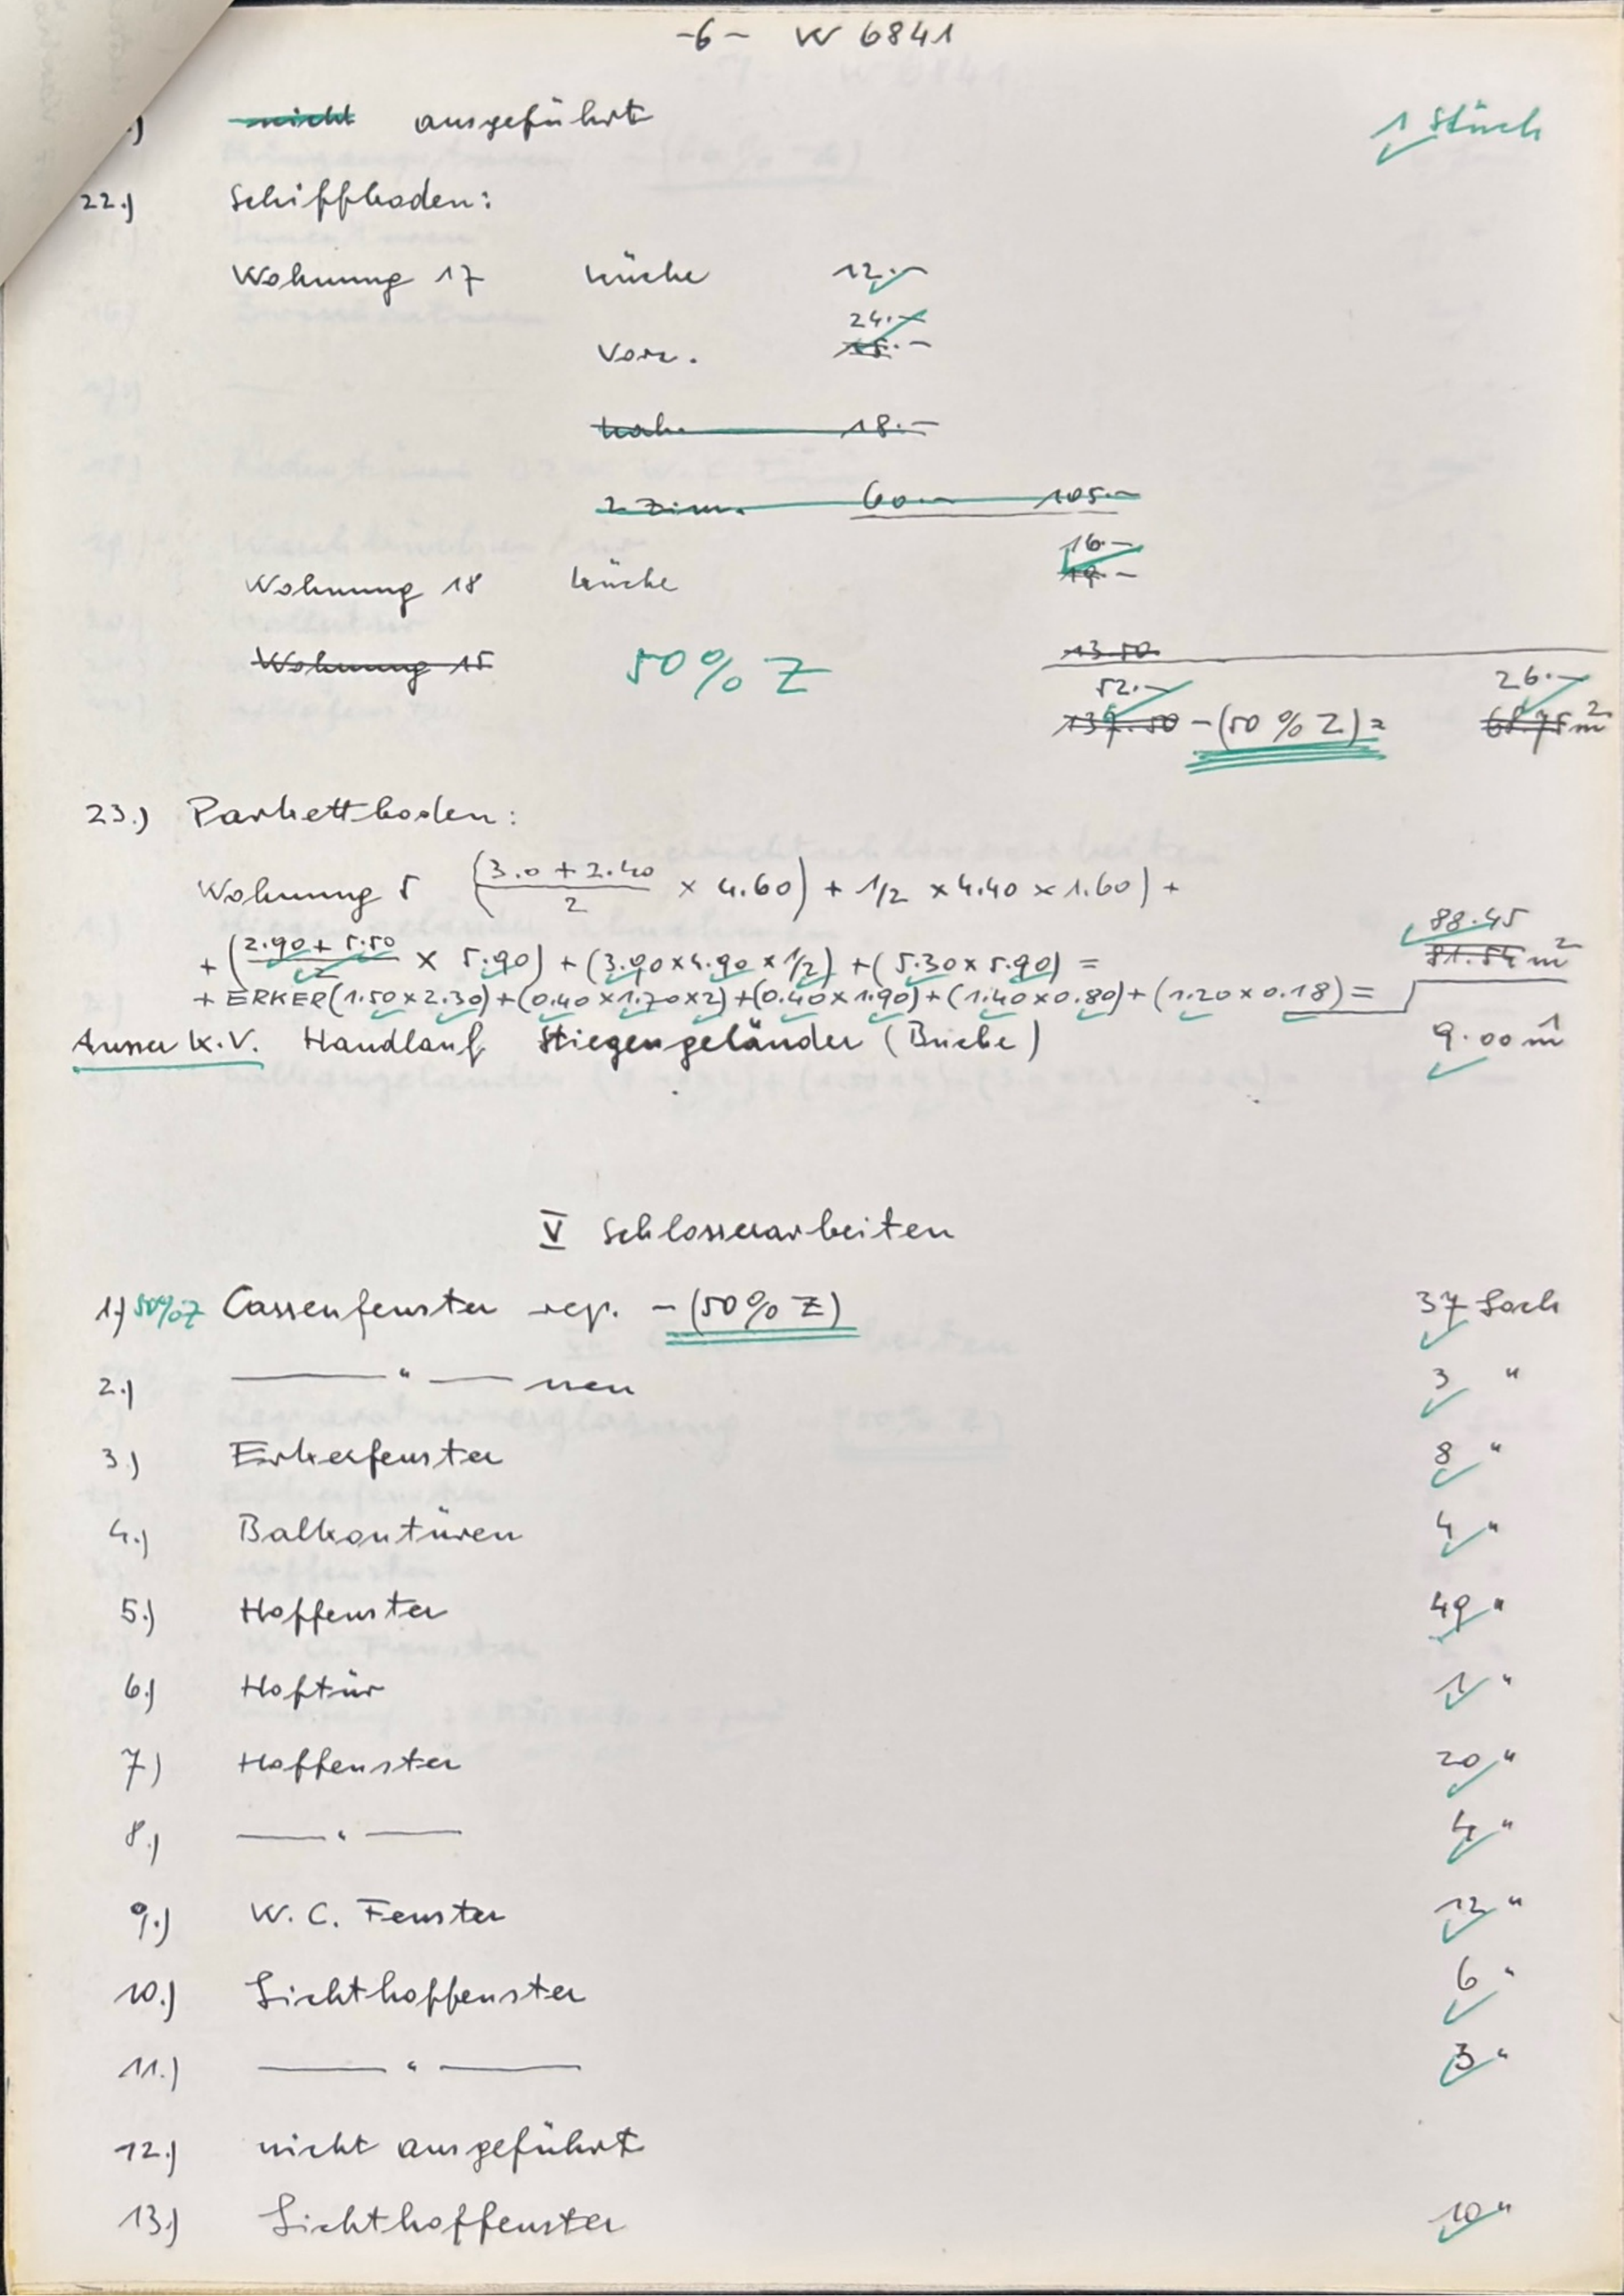 -6- W 6841
) nicht ausgeführt 1 Stück
22.) Schiffboden:
Wohnung 17 Küche 12.-
24.-
Vorz. 15.-
Kab. 18.-
2 Zim. 60.- 105.-
16.-
Wohnung 18 Küche 19.-
Wohnung 15 50% Z 13.50
52.- 26.-
137.50 -(50 % Z) = 68.75 m²
23.) Parkettboden:
Wohnung 5 (3.0 + 2.40 / 2 × 4.60) + 1/2 × 4.40 × 1.60) +
88.45
+ (2.90 + 5.50 / 2 × 5.90) + (3.90 × 4.90 × 1/2) + (5.30 × 5.90) = 81.54 m²
+ ERKER (1.50 × 2.30) + (0.40 × 1.70 × 2) + (0.40 × 1.90) + (1.40 × 0.80) + (1.20 × 0.18) =
Ausser K.V. Handlauf Stiegengeländer (Buche) 9.00 m¹
V Schlosserarbeiten
1.) 50% Z Cassenfenster rep. -(50% Z) 37 Stück
2.) — " — neu 3 "
3.) Erkerfenster 8 "
4.) Balkontüren 4 "
5.) Hoffenster 49 "
6.) Hoftür 1 "
7.) Hoffenster 20 "
8.) — " — 4 "
9.) W.C. Fenster 12 "
10.) Lichthoffenster 6 "
11.) — " — 3 "
12.) nicht ausgeführt
13.) Lichthoffenster 10 "